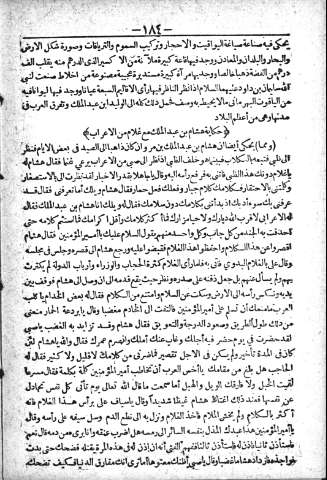 ١٨٤
يحكى فيه صناعة صياغة اليواقيت والاحجار وتركيب السموم والترياقات وصورة شكل الارض
والبحار والبلدان والمعادن ووجد فيها قاعة كبيرة ملآ نة من الاكسير الذى الدرهم منه يقلب الف
درهم من الفضة ذهبا خالصا ووجد بها مرآة كبيرة مستديرة عجيبة مصنوعة من اخلاط صنعت لنبى
الله سليمان بن داود عليهما السلام اذا نظر الناظر فيها رأى الاقاليم السبعة عيانا ووجد فيها ليوانا فيه
من الياقوت البهرمانى مالا يحيط به وصف فحمل ذلك كله الى الوليد بن عبد الملك وتفرق العرب فى
مدنها وهى من أعظم البلاد
(حكاية هشام بن عبد الملك مع غلام من الاعراب)
(ومما) يحكى أيضا ان هشام بن عبد الملك بن مروان كان ذاهبا الى الصيد فى بعض الايام فنظر
الى ظبى فتبعه بالكلاب فبينما هو خلف الظبى اذ نظر الى صبى من الاعراب يرعى غنما فقال هشام له
يا غلام دونك هذا الظبى فأتنى به فرفع رأسه اليه وقال يا جاهلا بقدر الاخيار لقد نظرت الى باستصغار
وكلمتنى بالاحتقار فكلامك كلام جبار وفعلك فعل حمار فقال هشام ويلك أما تعرفنى فقال قد
عرفنى بك سوء أدبك اذ بدأتنى بكلامك دون سلامك فقال له ويلك انا هشام بن عبد الملك فقال
له الاعرابى لاقرب الله ديارك ولا حيا مزارك فما أكثر كلامك وأقل اكرامك فما استتم كلامه حتى
أحدقت به الجند من كل جانب وكل واحد منهم يقول السلام عليك يا أمير المؤمنين فقال هشام
اقصروا عن هذا الكلام واحفظوا هذا الغلام فقبضوا عليه ورجع هشام الى قصره وجلس فى مجلسه
وقال على بالغلام البدوى فأتى به فلما رأى الغلام كثرة الحجاب والوزراء وأرباب الدولة لم يكترث
بهم ولم يسأل عنهم بل جعل ذقنه على صدره ونظر حيث يقع قدمه الى ان وصل الى هشام فوقف بين
يديه ونكس رأسه الى الارض وسكت عن السلام وامتنع من الكلام فقال له بعض الخدام يا كلب
العرب ما منعك أن تسلم على أمير المؤمنين فالتفت الى الخادم مغضبا وقال يا بردعة الحمار منعنى
من ذلك طول الطريق وصعود الدرجة والتعويق فقال هشام وقد تزايد به الغضب يا صبى
لقد حضرت فى يوم حضر فيه أجلك وغاب عنك أملك وانصرم عمرك فقال والله يا هشام لئن
كان فى المدة تأخير ولم يكن فى الاجل تقصير فما ضرنى من كلامك لا قليل ولا كثير فقال له
الحاجب هل بلغ من مقامك يا أخس العرب أن تخاطب أمير المؤمنين كلمة بكلمة فقال مسرعا
لقيت الخبل ولا فارقك الويل والهبل أما سمعت ما قال الله تعالى يوم تأتى كل نفس تجادل
عن نفسها فعند ذلك اغتاظ هشام غيظا شديدا وقال يا سياف على برأس هذا الغلام فانه
أكثر بالكلام ولم يخش الملام فأخذ الغلام ونزل به الى نطع الدم وسل سيفه على رأسه وقال
يا أمير المؤمنين هذا عبدك المذل بنفسه السائر الى رمسه هل اضرب عنقه وأنا برىء من دمه قال نعم
فاستأذن ثانيا فأذن له فاستأذن ثالثا ففهم الفتى أنه ان اذن له فى هذه المرة يقتله فضحك حتى بدت
نواجذه فازداد هشام غضبا وقال يا صبى أظنك معتوها أما ترى انك مفارق الدنيا فكيف تضحك